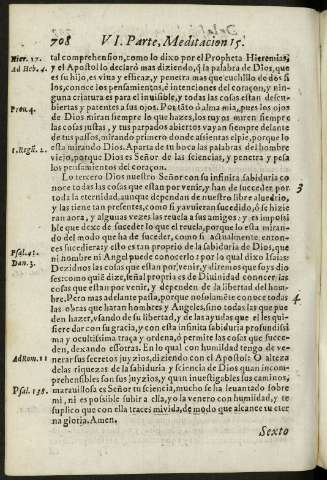 708 VI. Parte, Meditacion 15.
Hier. 17.
Ad Heb. 4.
tal comprehension, como lo dixo por el Propheta Hieremias,
y el Apostol lo declaró mas diziendo, q̃ la palabra de Dios, que
es su hijo, es viua y eficaz, y penetra mas que cuchillo de dos fi
los, conoce los pensamientos, è intenciones del coraçon, y nin-
guna criatura es para el inuisible, y todas las cosas estan descu-
Prou. 4.
biertas y patentes a sus ojos. Por tãto ô alma mia, pues los ojos
de Dios miran siempre lo que hazes, los tuyos miren siempre
las cosas justas, y tus parpados abiertos vayan siempre delante
de tus passos, mirando primero donde assientas el pie, porque lo
1. Regũ. 2.
està mirando Dios. Aparta de tu boca las palabras del hombre
viejo, porque Dios es Señor de las sciencias, y penetra y pesa
los pensamientos del coraçon.
Lo tercero Dios nuestro Señor con su infinita sabiduria co
noce todas las cosas que estan por venir, y han de succeder por 3
toda la eternidad, aunque dependan de nuestro libre aluedrio,
y las tiene tan presentes, como si ya vuiesen sucedido, ó se hizie
ran aora, y algunas vezes las reuela a sus amigos: y es imposi
ble que dexe de suceder lo que el reuela, porque lo esta miran-
do del modo que ha de suceder, como si actualmente enton-
Psal. 41.
ces sucediera: y esto es tan proprio de la sabiduria de Dios, que
Dan. 3.
ni hombre ni Angel puede conocerlo: por lo qual dixo Isaias:
Dezidnos las cosas que estan por venir, y diremos que soys dio
ses: como quiẽ dize, señal propria es de Diuinidad conocer las
cosas que estan por venir, y dependen de la libertad del hom-
bre. Pero mas adelante passa, porque no solamẽte conoce todas 4.
las obras que haran hombres y Angeles, sino todas las que pue
den hazer, vsando de su libertad, y de las ayudas que el les quisi
ere dar con su gracia, y con esta infinita sabiduria profundisi
ma y ocultissima traça y ordena, ô permite las cosas que succe-
den, dexando essotras. En lo qual con humildad tengo de ve-
Ad Rom. 11
nerar sus secretos juyzios, diziendo con el Apostol: O alteza
de las riquezas de la sabiduria y sciencia de Dios quan incom-
prehensibles son sus juyzios, y quan inuestigables sus caminos,
Psal. 138.
marauillosa es Señor tu sciencia, mucho se ha leuantado sobre
mi, ni es possible subir a ella, yo la venero con humildad, y te
suplico que con ella traces mi vida, de modo que alcance tu eter
na gloria. Amen.
Sexto